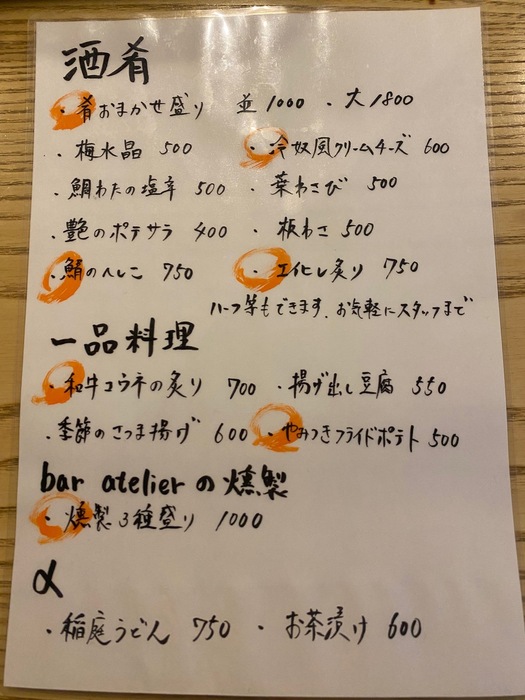 酒肴
・肴おまかせ盛り 並1000 ・大1800
・梅水晶 500 ・冷奴風クリームチーズ 600
・鯛わたの塩辛 500 ・葉わさび 500
・艶のポテサラ 400 ・板わさ 500
・鯖のへしこ 750 ・エイヒレ炙り 750
ハーフ等もできます、お気軽にスタッフまで
一品料理
・和牛コウネの炙り 700 ・揚げ出し豆腐 550
・季節のさつま揚げ 600 ・やみつきフライドポテト 500
bar atelierの燻製
・燻製3種盛り 1000
α
・稲庭うどん 750 ・お茶漬け 600